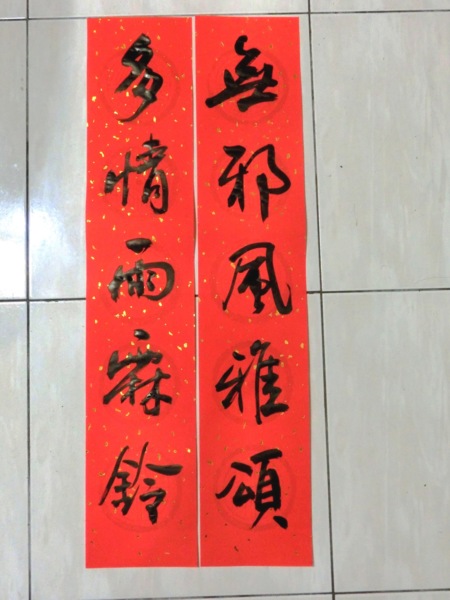 無邪風雅頌
多情雨霖鈴